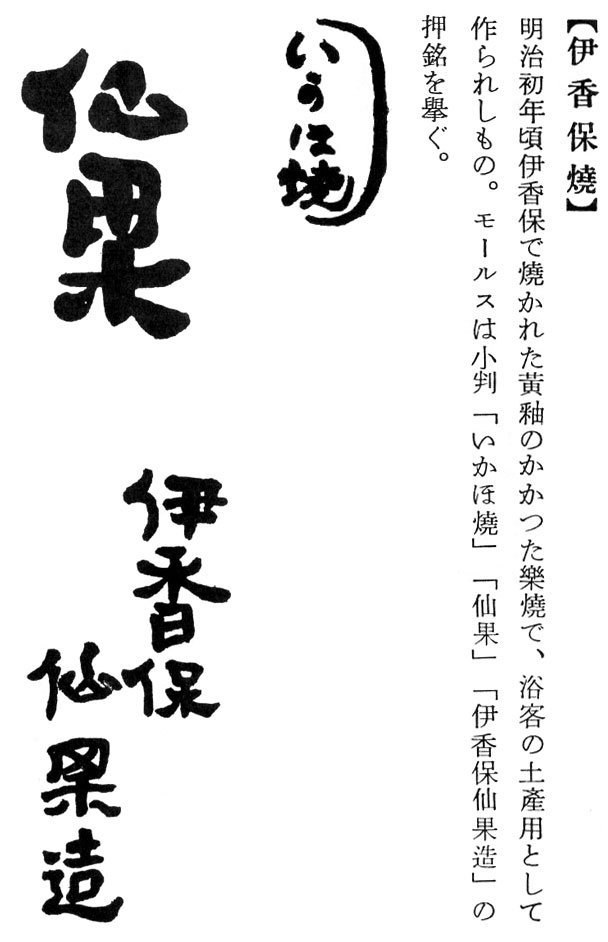 【伊香保燒】
明治初年頃伊香保で燒かれた黃釉のかかつた樂燒で、浴客の土產用として
作られしもの。モールスは小判「いかほ燒」「仙果」「伊香保仙果造」の
押銘を擧ぐ。
いかほ燒
仙果
伊香保
仙果造